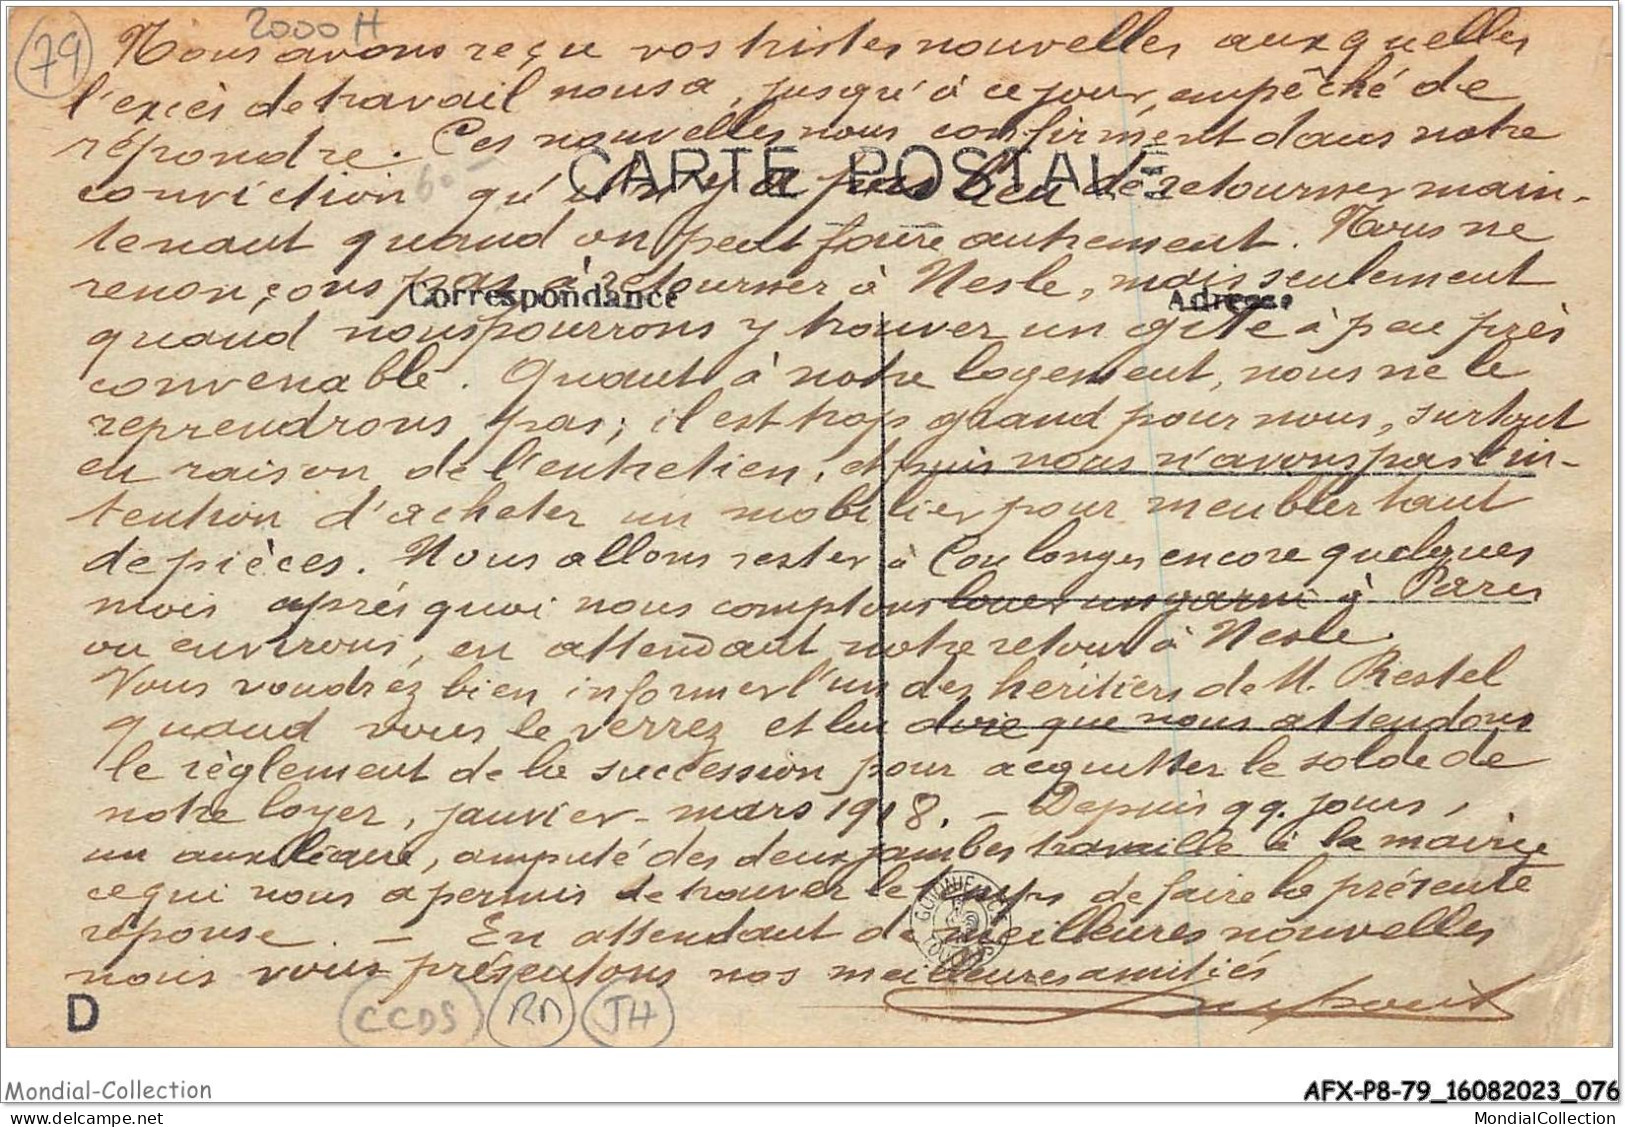 79
2000 H
Nous avons reçu vos tristes nouvelles auxquelles
l'excès de travail nous a, jusqu'à ce jour, empêché de
répondre. Ces nouvelles nous confirment dans notre
CARTE POSTALE
60 -
conviction qu'il n'y a pas lieu de retourner main-
tenant quand on peut faire autrement. Nous ne
renonçons pas à retourner à Nesle, mais seulement
Correspondance
Adresse
quand nous pourrons y trouver un gîte à peu près
convenable. Quant à notre logement, nous ne le
reprendrons pas; il est trop grand pour nous, surtout
en raison de l'entretien, et puis nous n'avons pas l'in-
tention d'acheter un mobilier pour meubler tant
de pièces. Nous allons rester à Coulonges encore quelques
mois après quoi nous comptons louer un garni à Paris
ou environs, en attendant notre retour à Nesle.
Vous voudrez bien informer l'un des héritiers de M. Restel
quand vous le verrez et lui dire que nous attendons
le règlement de la succession pour acquitter le solde de
notre loyer, janvier-mars 1918. - Depuis qq. jours,
un auxiliaire, amputé des deux jambes travaille à la mairie
ce qui nous a permis de trouver le temps de faire la présente
réponse. - En attendant de meilleures nouvelles
nous vous présentons nos meilleures amitiés
D
CCDS
RD
JH
Mondial-Collection
AFX-P8-79_16082023_076
MondialCollection